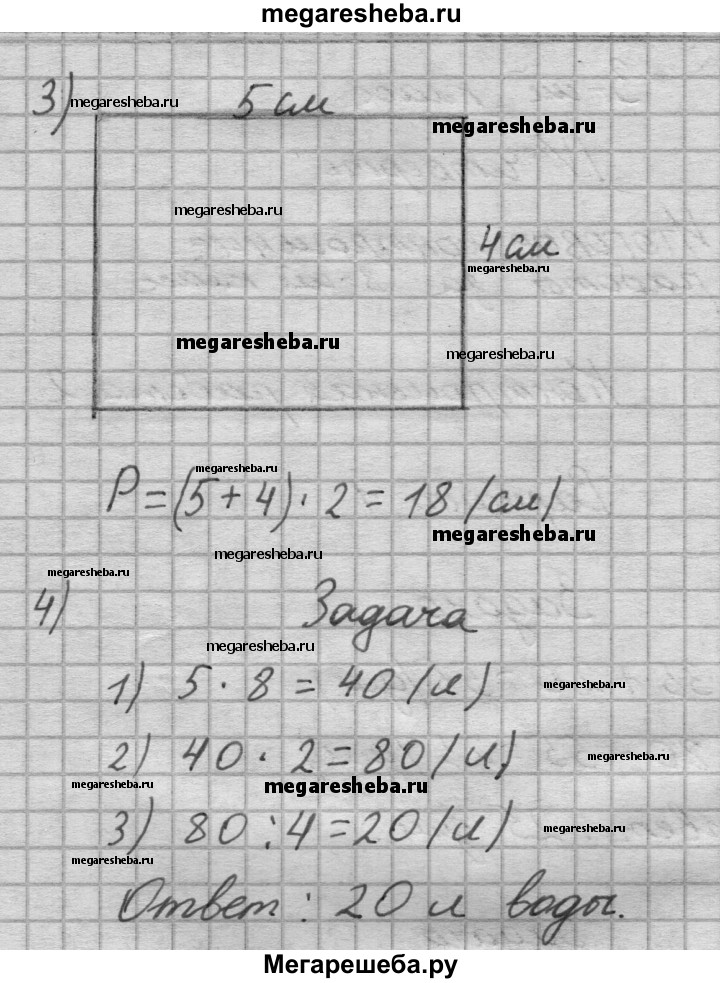 megaresheba.ru
3) megaresheba.ru 5 см
megaresheba.ru
megaresheba.ru
4 см
megaresheba.ru
megaresheba.ru
megaresheba.ru
megaresheba.ru
P = (5 + 4) · 2 = 18 (см)
megaresheba.ru
megaresheba.ru
megaresheba.ru
4) Задача
megaresheba.ru
1) 5 · 8 = 40 (л) megaresheba.ru
2) 40 · 2 = 80 (л) megaresheba.ru
megaresheba.ru megaresheba.ru
3) 80 : 4 = 20 (л) megaresheba.ru
megaresheba.ru
Ответ: 20 л воды.
Мегарешеба.ру